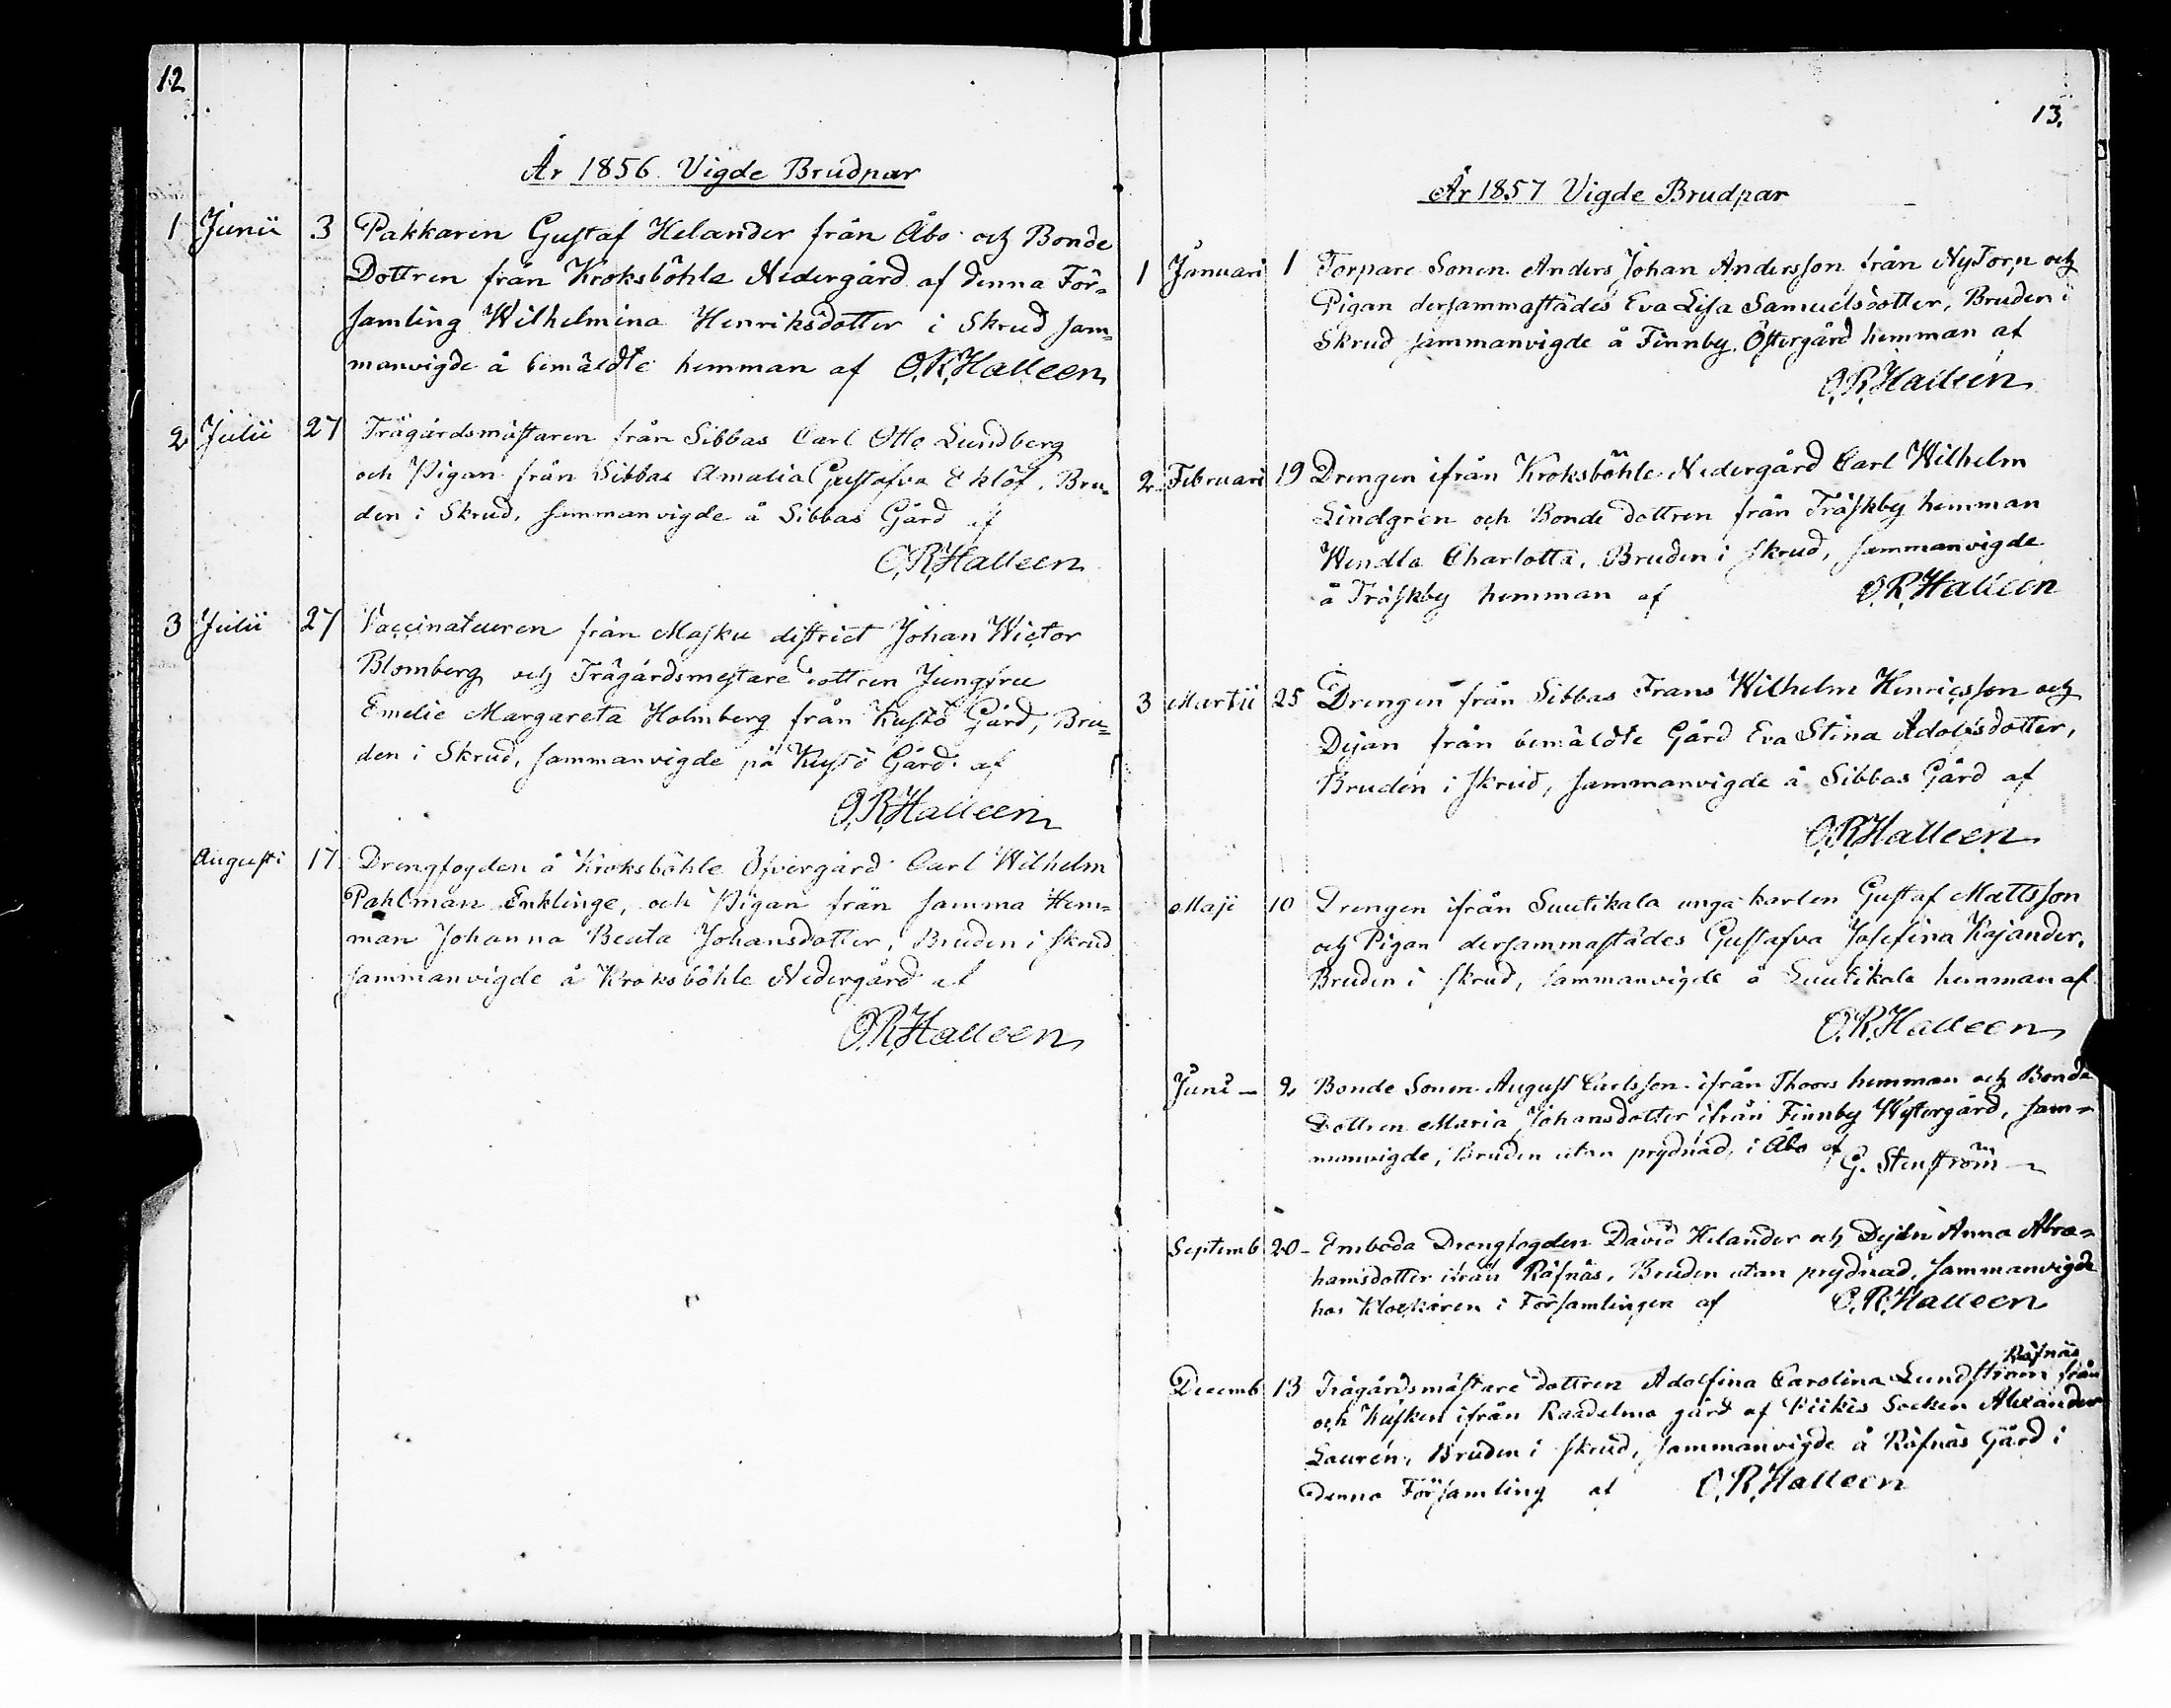 12
År 1856 Vigde Brudpar
1 Junii 3 Pakkaren Gustaf Helander från Åbo och Bonde
Dottren från Kroksböhle Nedergård af denna För-
samling Wilhelmina Henriksdotter i Skrud sam-
manvigde å bemäldte hemman af O.R.Halleen
2 Julii 27 Trägårdsmästaren från Sibbas Carl Otto Lundberg
och Pigan från Sibbas Amalia Gustafva Eklöf, Bru-
den i Skrud, sammanvigde å Sibbas Gård af
O.R.Halleen
3 Julii 27 Vaccinateuren från Masku district Johan Wictor
Blomberg och Trägårdsmestare dottren Jungfru
Emelie Margareta Holmberg från Kustö Gård, Bru-
den i Skrud, sammanvigde på Kustö Gård af
O.R.Halleen
Augusti 17 Drengfogden å Kroksböhle Öfvergård Carl Wilhelm
Pahlman Enklinge, och Pigan från samma Hem-
man Johanna Beata Johansdotter, Bruden i skrud
sammanvigde å Kroksböhle Nedergård af
O.R.Halleen
13.
År 1857 Vigde Brudpar
1 Januari 1 Torpare Sonen Anders Johan Andersson från NyTorp och
Pigan dersammastädes Eva Lisa Samuelsdotter, Bruden i
Skrud sammanvigde å Finnby Östergård hemman af
O.R.Halleen
2 Februari 19 Drengen ifrån Kroksböhle Nedergård Carl Wilhelm
Lindgren och Bonde dottren från Träskby hemman
Wendla Charlotta, Bruden i skrud, sammanvigde
å Träskby hemman af O.R.Halleen
3 Martii 25 Drengen från Sibbas Frans Wilhelm Henricsson och
Dejan från bemäldte Gård Eva Stina Adolfsdotter,
Bruden i skrud, sammanvigde å Sibbas Gård af
O.R.Halleen
Maji 10 Drengen ifrån Suutikala unga karlen Gustaf Mattsson
och Pigan dersammastädes Gustafva Josefina Kajander,
Bruden i skrud, sammanvigde å Suutikala hemman af
O.R.Halleen
Juni - 2 Bonde Sonen August Carlsson ifrån Thoors hemman och Bonde
Dottren Maria Johansdotter ifrån Finnby Westergård, sam-
manvigde, Bruden utan prydnad, i Åbo af G. Stenström
Septemb 20 - Enboda Drengfogden David Helander och Dejan Anna Abra-
hamsdotter ifrån Räfnäs, Bruden utan prydnad, sammanvigde
hos Klockaren i Församlingen af O.R.Halleen
Räfnäs
Decemb 13 Trägårdsmästare dottren Adolfina Carolina Lundström från
och Kusken ifrån Raadelma gård af Piikis Socken Alexander
Laurén, Bruden i skrud, sammanvigde å Räfnäs Gård i
denna Församling af O.R.Halleen